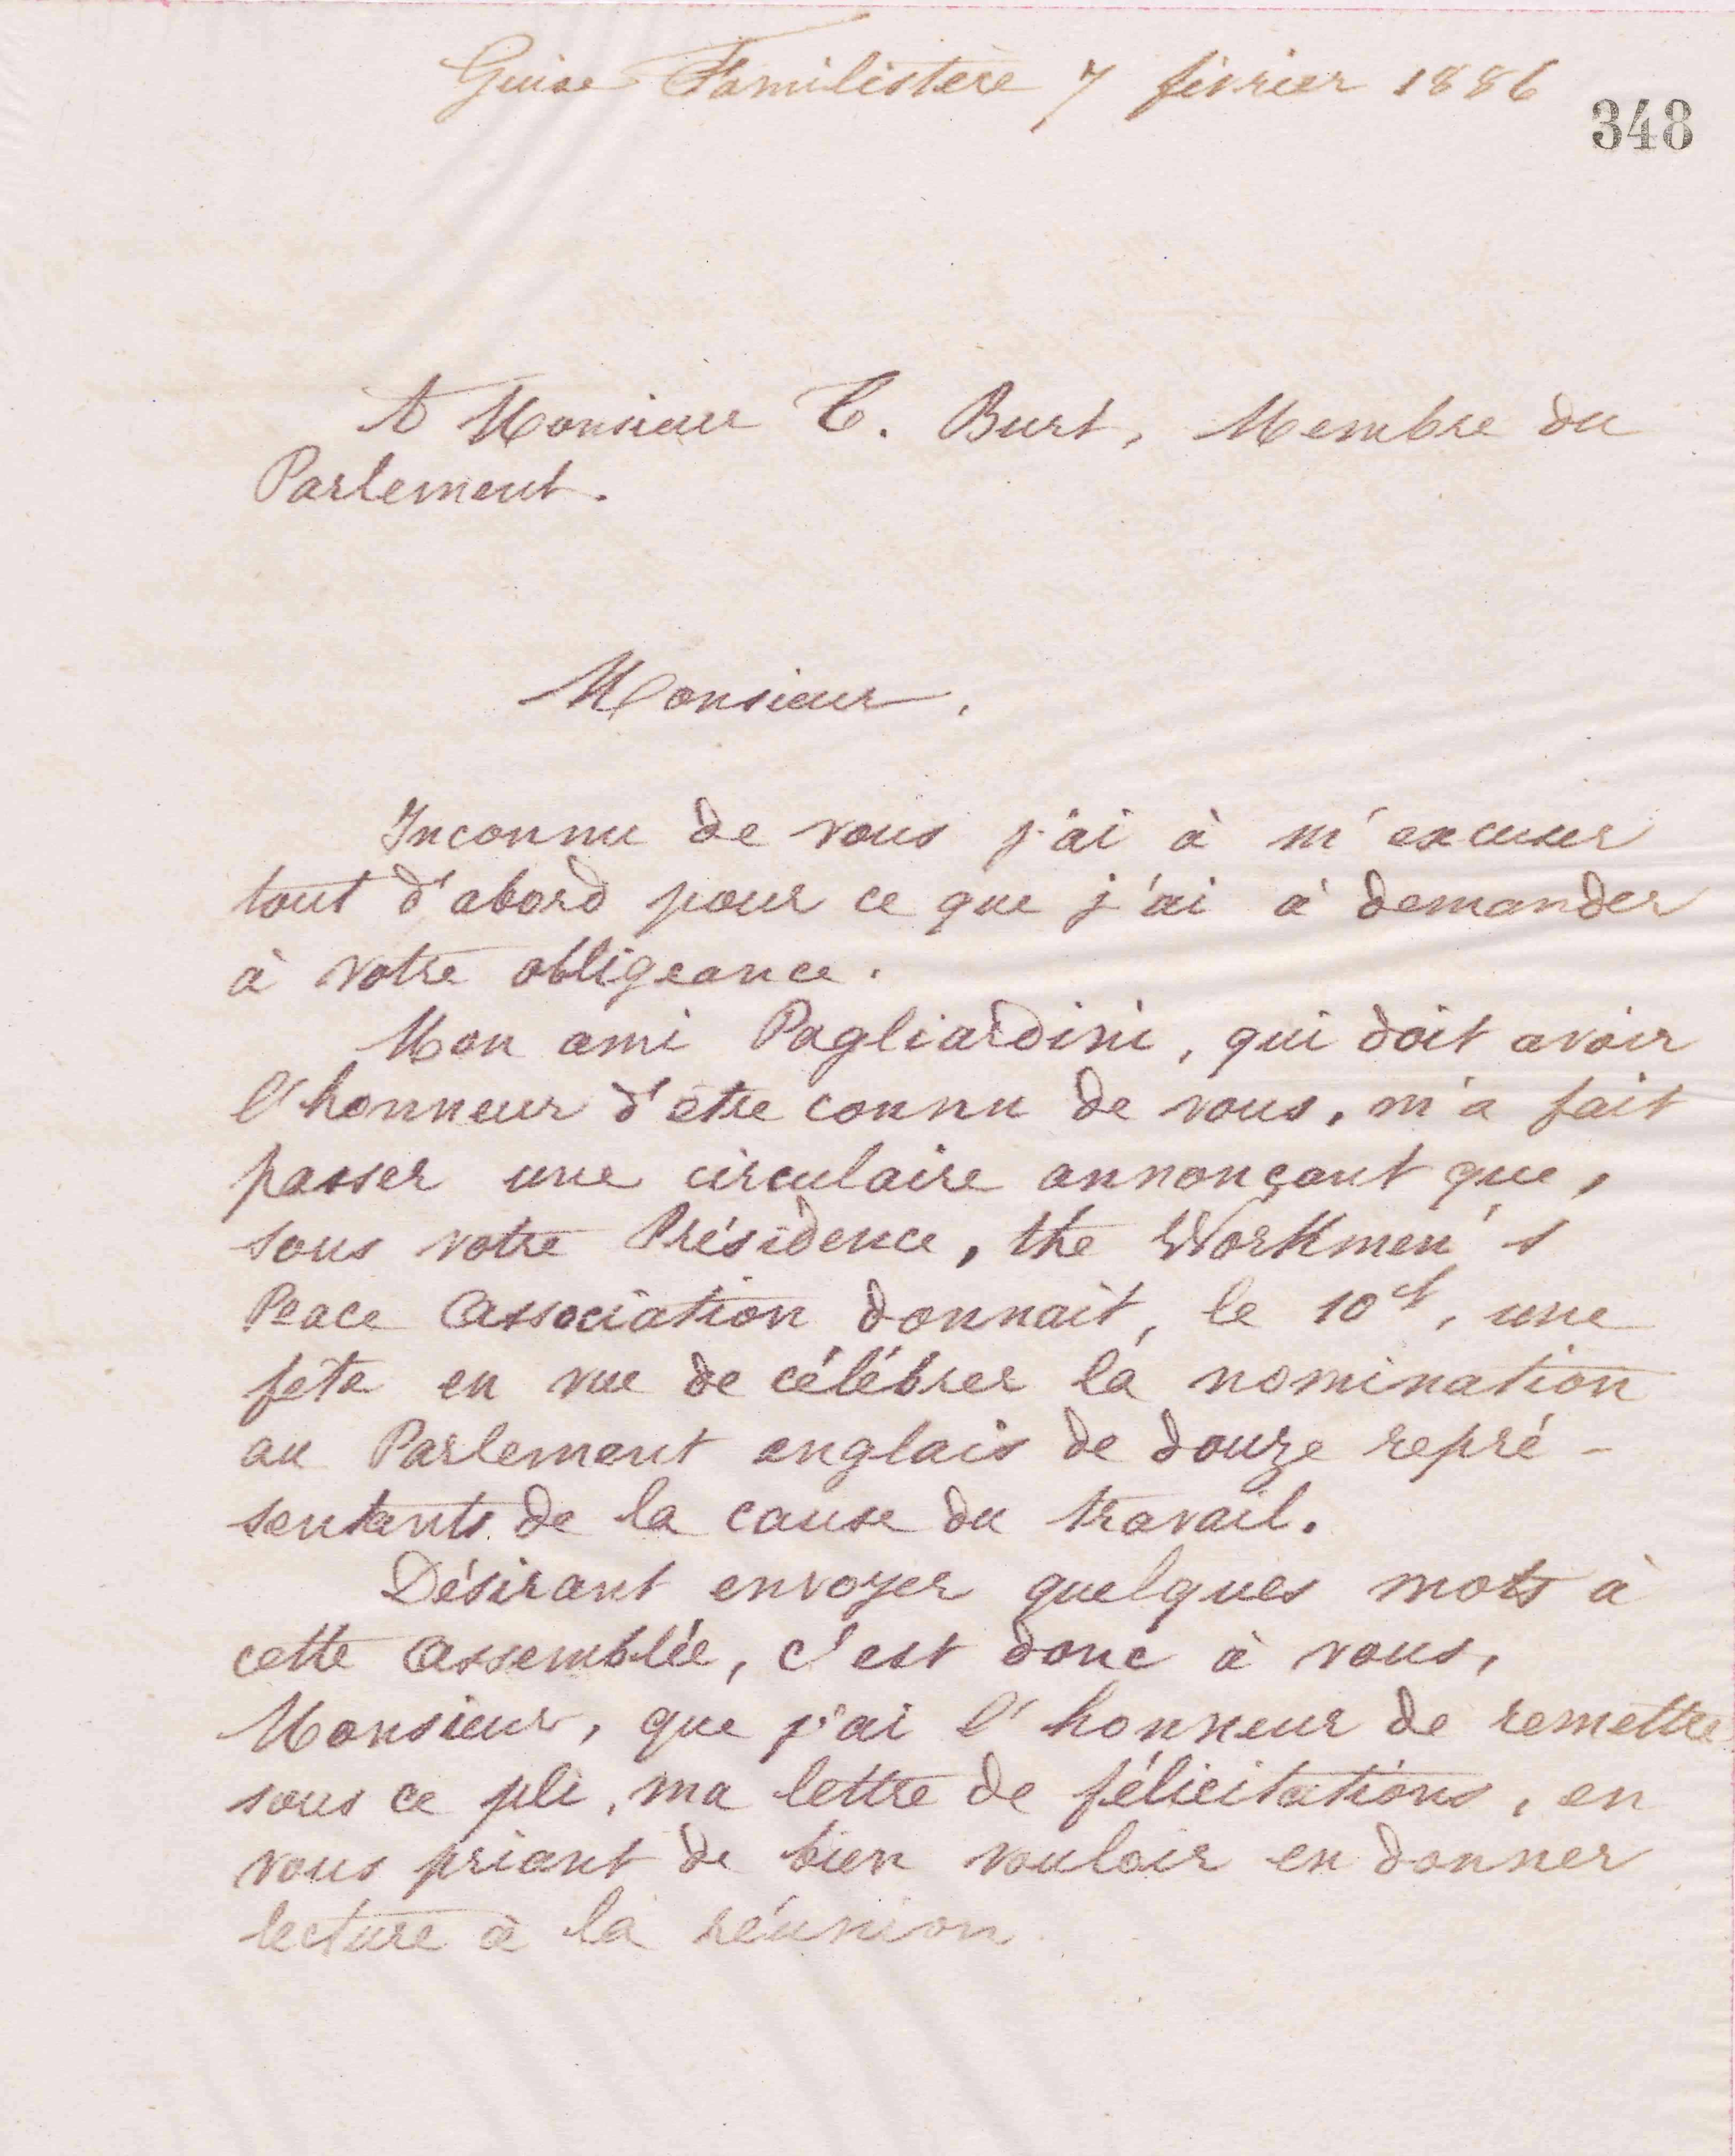 Guise Familistère 7 février 1886
348
A Monsieur T. Burt, Membre du
Parlement.
Monsieur,
Inconnu de vous j'ai à m'excuser
tout d'abord pour ce que j'ai à demander
à votre obligeance.
Mon ami Pagliardini, qui doit avoir
l'honneur d'être connu de vous, m'a fait
passer une circulaire annonçant que,
sous votre Présidence, the Workmen's
Peace Association donnait, le 10 ct, une
fête en vue de célébrer la nomination
au Parlement anglais de douze repré-
sentants de la cause du travail.
Désirant envoyer quelques mots à
cette assemblée, c'est donc à vous,
Monsieur, que j'ai l'honneur de remettre
sous ce pli, ma lettre de félicitations, en
vous priant de bien vouloir en donner
lecture à la réunion.